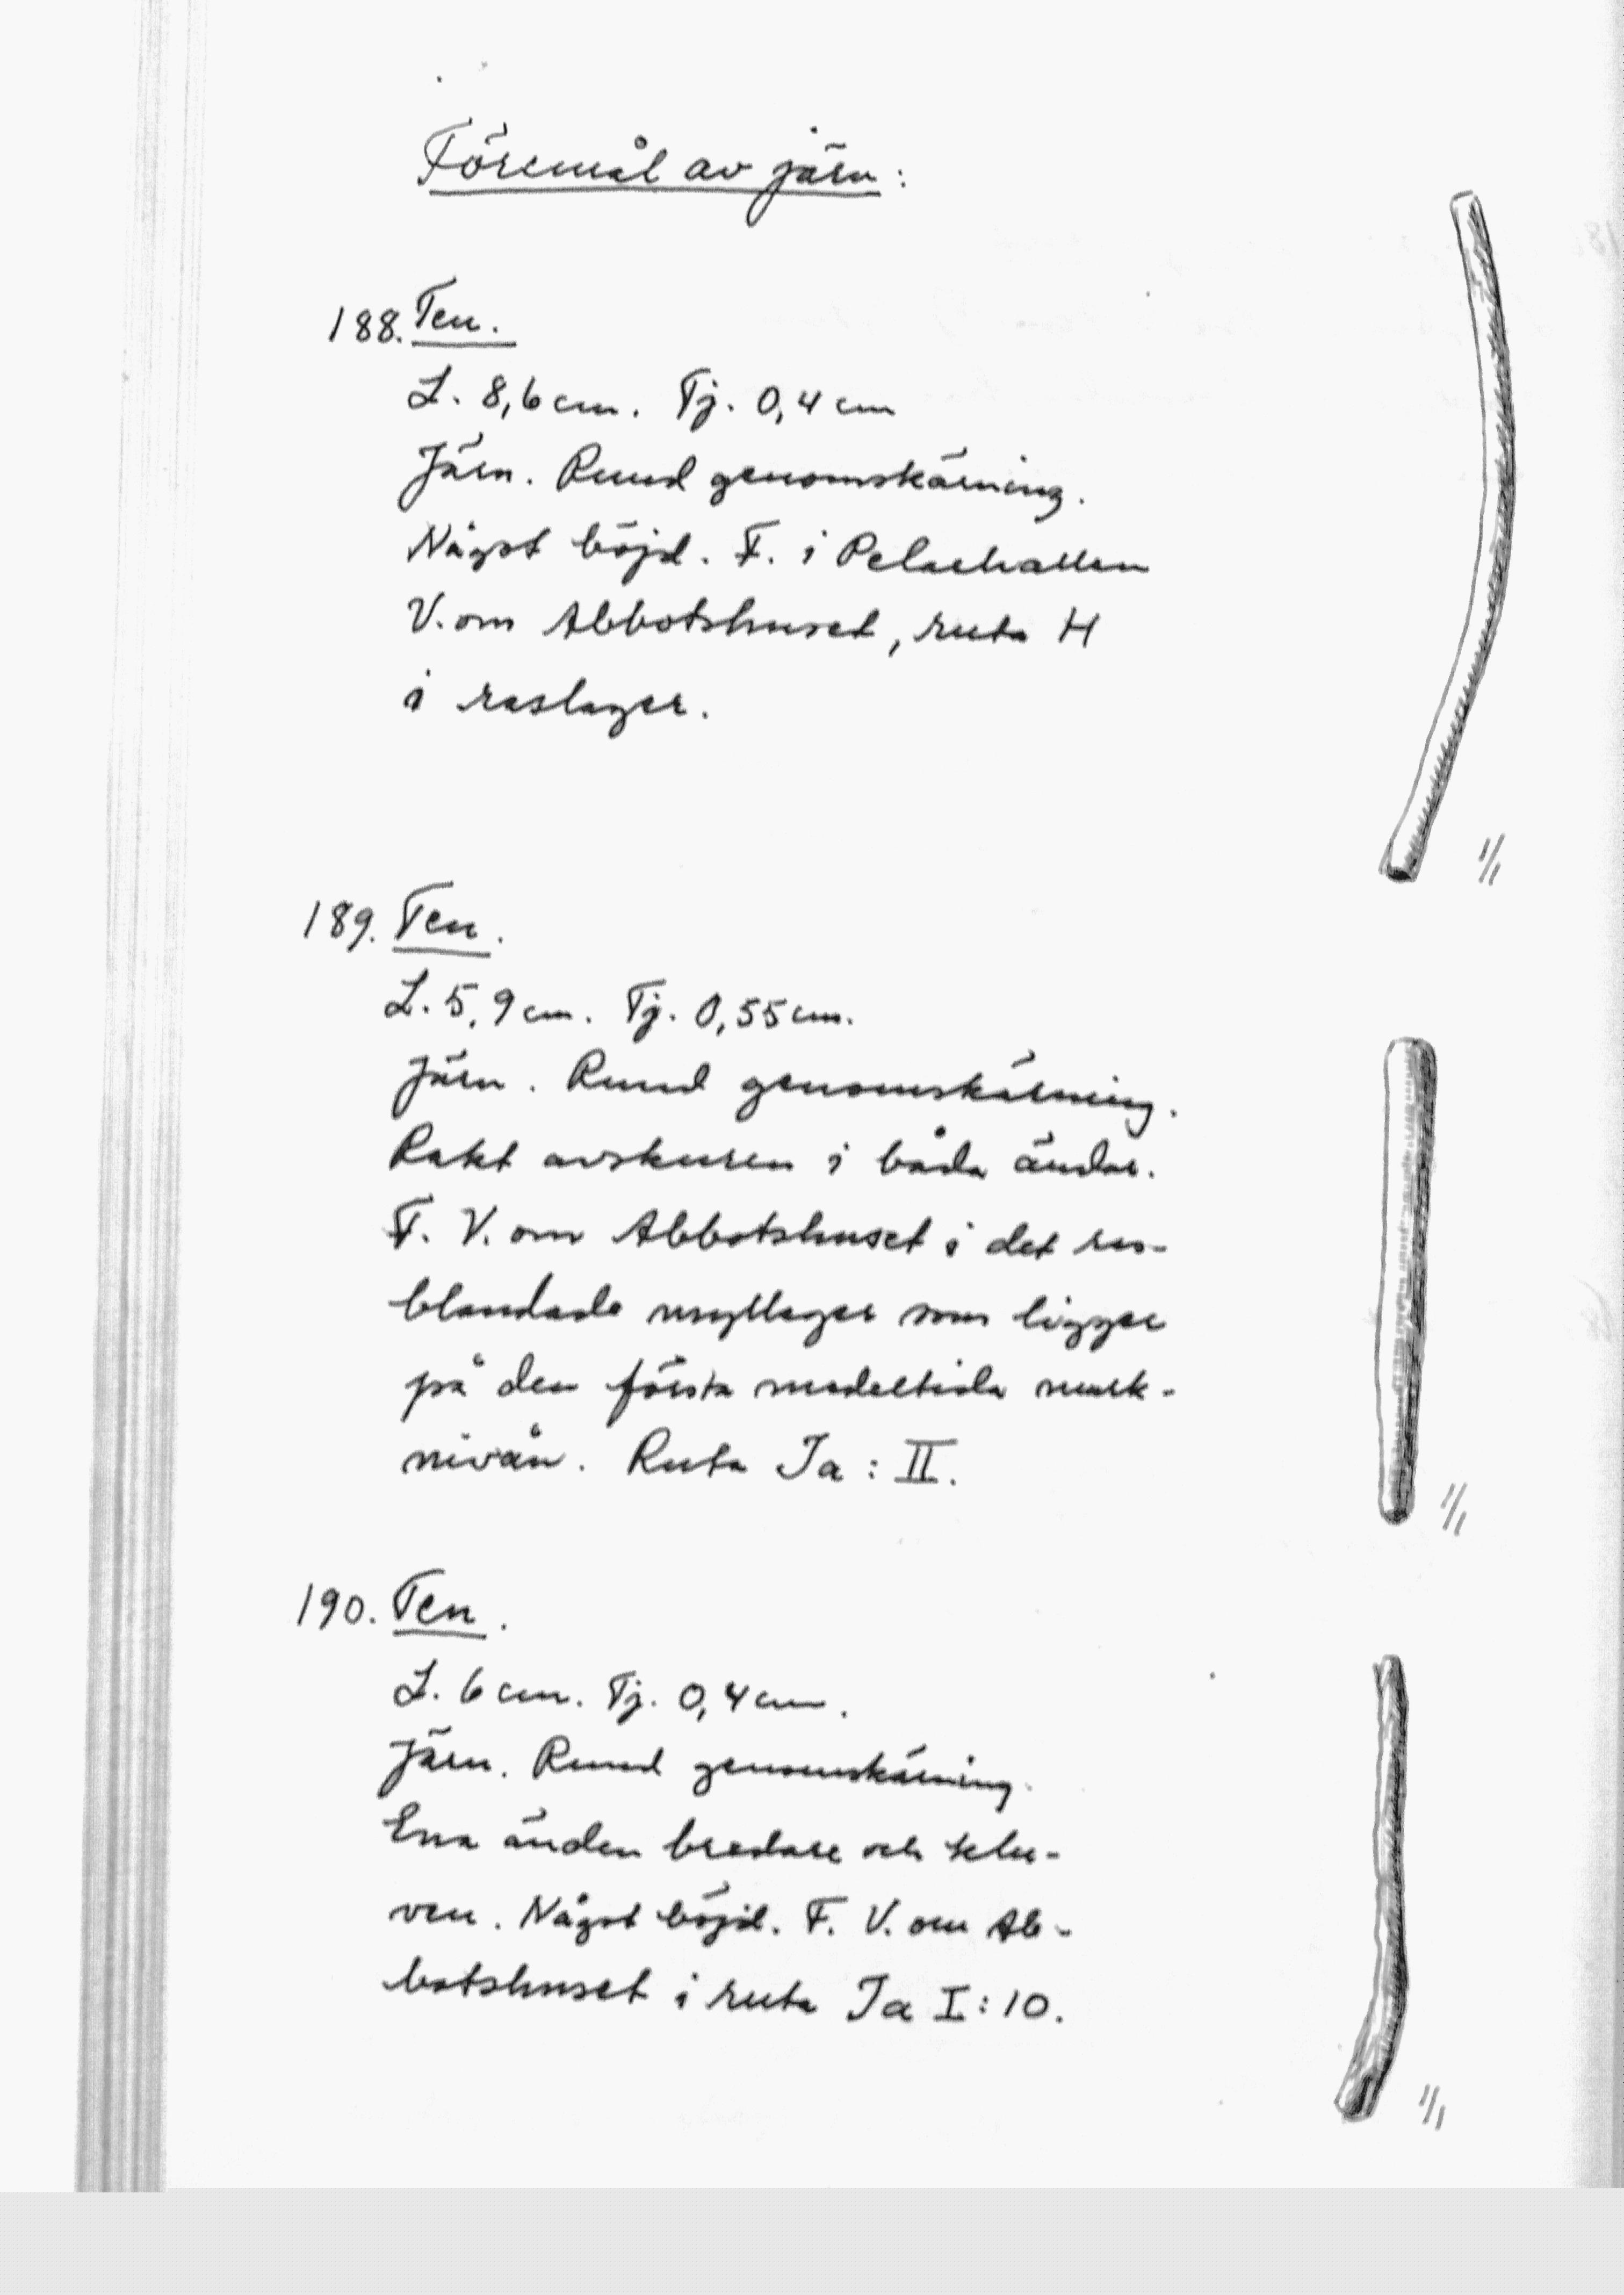 Föremål av järn:
188. Ten.
L. 8,6 cm. Tj. 0,4 cm
Järn. Rund genomskärning.
Något böjd. F. i Pelarhallen
V. om Abbotshuset, ruta H
i raslager.
1/1
189. Ten.
L. 5,9 cm. Tj. 0,55 cm.
Järn. Rund genomskärning.
Rakt avskuren i båda ändar.
F. V. om Abbotshuset i det ras-
blandade myllager som ligger
på den första medeltida mark-
nivån. Ruta Ja : II.
1/1
190. Ten.
L. 6 cm. Tj. 0,4 cm.
Järn. Rund genomskärning.
Ena änden bredare och klu-
ven. Något böjd. F. V. om Ab-
botshuset i ruta Ja I:10.
1/1